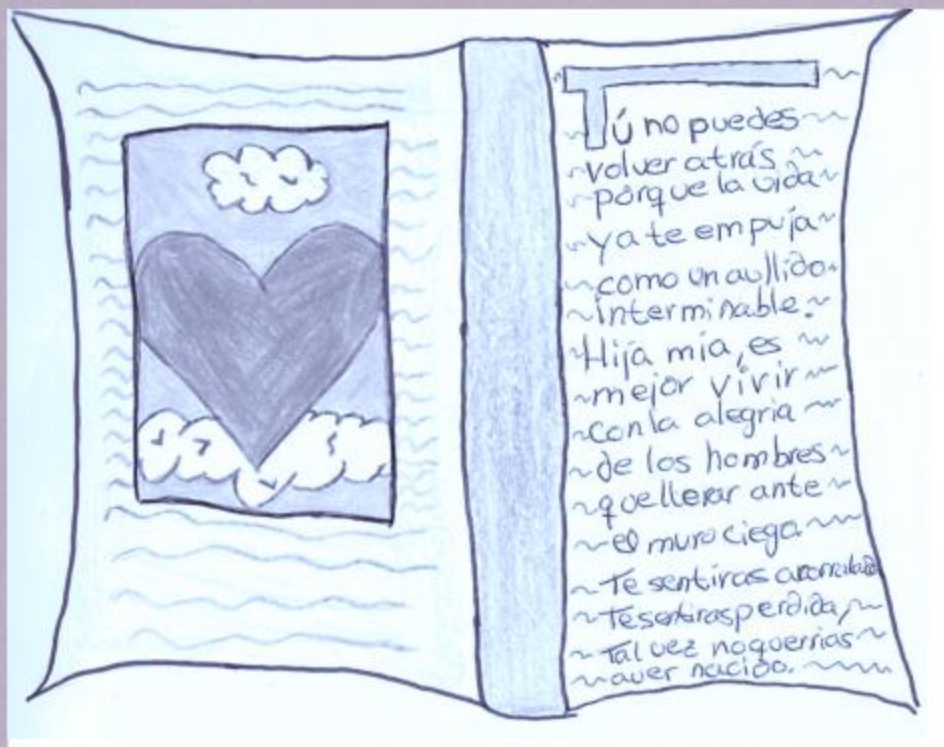 Tú no puedes
volver atrás
porque la vida
ya te empuja
como un aullido
interminable.
Hija mia, es
mejor vivir
con la alegria
de los hombres
que llerar ante
el muro ciego.
Te sentiras
Te sentiras perdida,
Tal vez no querrias
aver nacido.